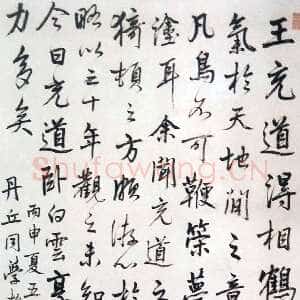 王充道得相鶴
氣於天地間之
凡鳥不可鞭策
塗耳余聞充道之
猗頓之方願游心於
略以三十年觀之未知
今日充道卧白雲
力多矣
丙申夏五
丹丘同學
Shufawang.CN